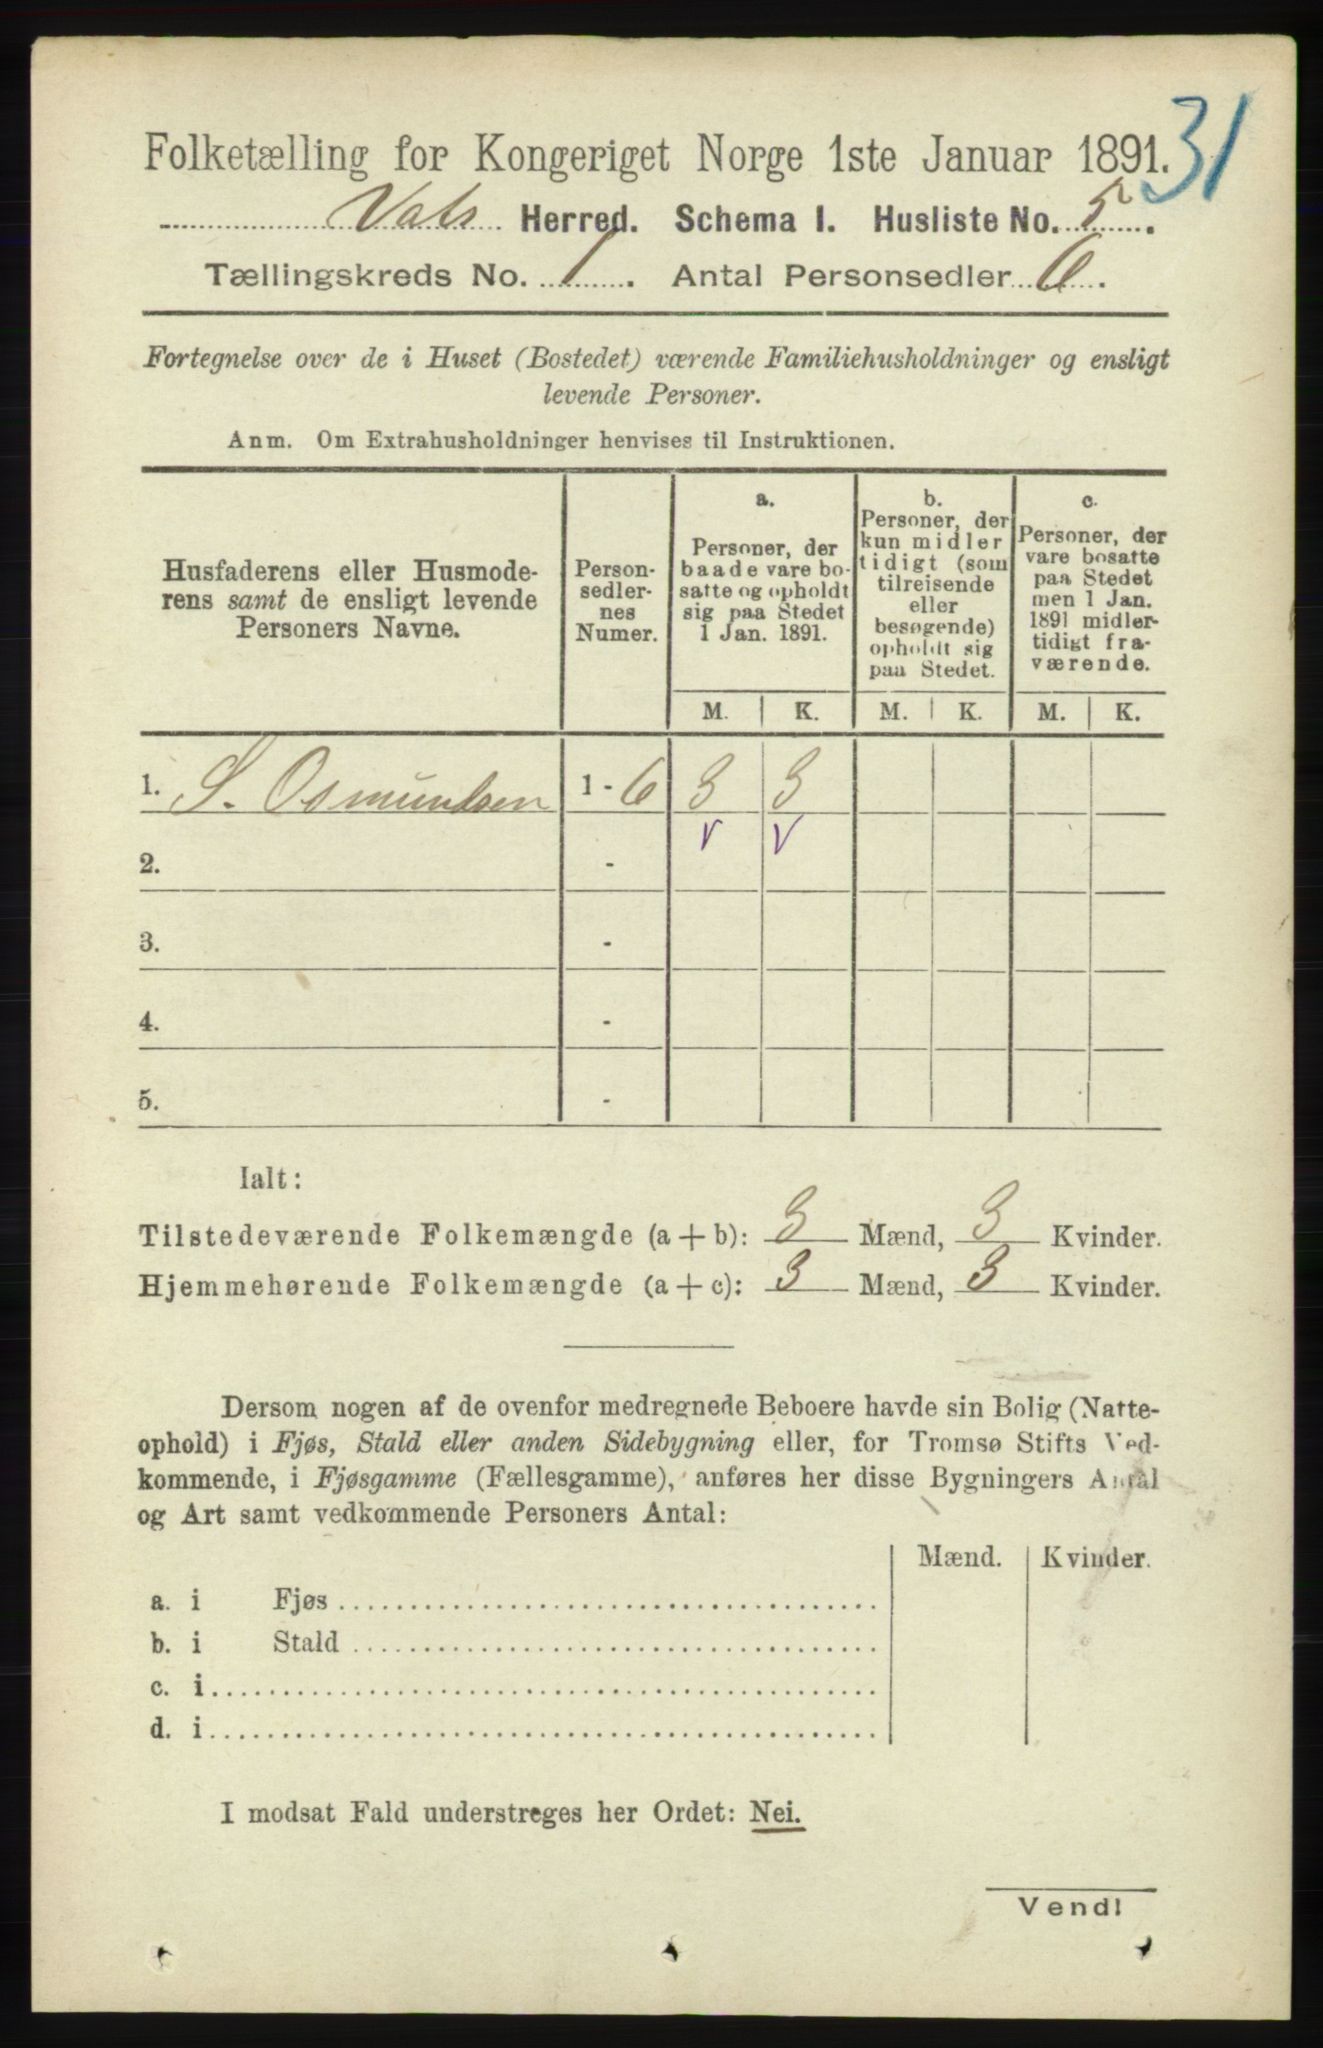 31
Folketælling for Kongeriget Norge 1ste Januar 1891.
Vats Herred. Schema I. Husliste No. 5.
Tællingskreds No. 1. Antal Personsedler 6.
Fortegnelse over de i Huset (Bostedet) værende Familiehusholdninger og ensligt
levende Personer.
Anm. Om Extrahusholdninger henvises til Instruktionen.
Husfaderens eller Husmode-
rens samt de ensligt levende
Personers Navne.
Person-
sedler-
nes
Numer.
a.
Personer, der
baade vare bo-
satte og opholdt
sig paa Stedet
1 Jan. 1891.
b.
Personer, der
kun midler
tidigt (som
tilreisende
eller
besøgende)
opholdt sig
paa Stedet.
c.
Personer, der
vare bosatte
paa Stedet
men 1 Jan.
1891 midler-
tidigt fra-
værende.
M. K. M. K. M. K.
1. S. Osmundsen 1 - 6 3 3
v v
2. -
3. -
4. -
5. -
Ialt:
Tilstedeværende Folkemængde (a + b): 3 Mænd, 3 Kvinder.
Hjemmehørende Folkemængde (a + c): 3 Mænd, 3 Kvinder.
Dersom nogen af de ovenfor medregnede Beboere havde sin Bolig (Natte-
ophold) i Fjøs, Stald eller anden Sidebygning eller, for Tromsø Stifts Ved-
kommende, i Fjøsgamme (Fællesgamme), anføres her disse Bygningers Antal
og Art samt vedkommende Personers Antal:
Mænd. Kvinder.
a. i Fjøs
b. i Stald
c. i
d. i
I modsat Fald understreges her Ordet: Nei.
Vend!